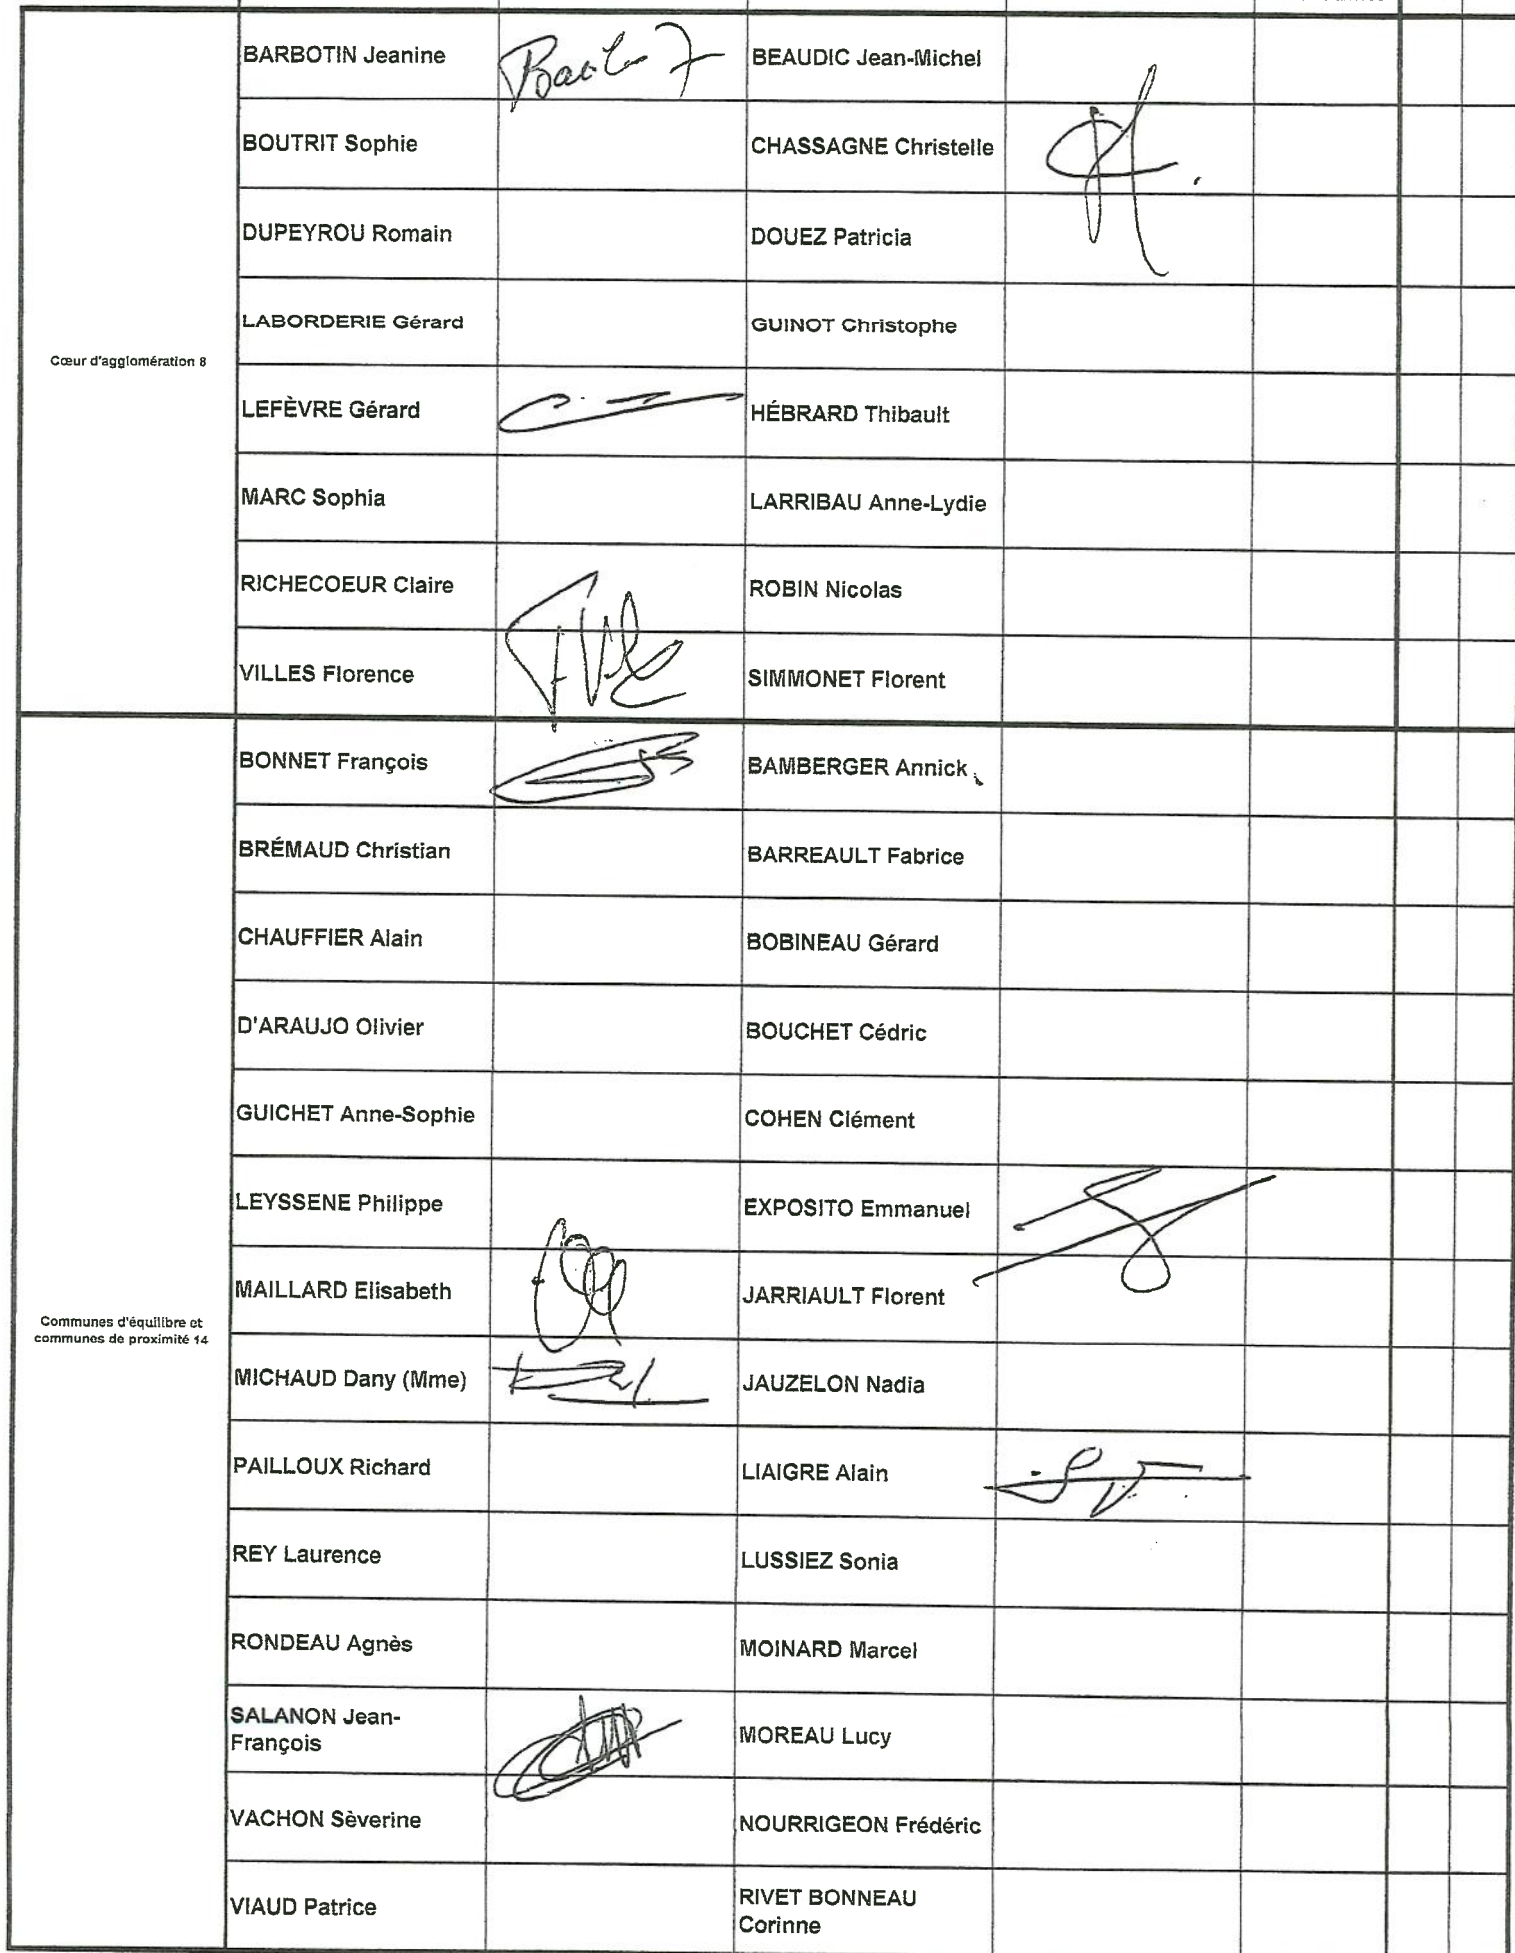 BARBOTIN Jeanine
BEAUDIC Jean-Michel
BOUTRIT Sophie
CHASSAGNE Christelle
DUPEYROU Romain
DOUEZ Patricia
LABORDERIE Gérard
GUINOT Christophe
Cœur d'agglomération 8
LEFÈVRE Gérard
HÉBRARD Thibault
MARC Sophia
LARRIBAU Anne-Lydie
RICHECOEUR Claire
ROBIN Nicolas
VILLES Florence
SIMMONET Florent
BONNET François
BAMBERGER Annick
BRÉMAUD Christian
BARREAULT Fabrice
CHAUFFIER Alain
BOBINEAU Gérard
D'ARAUJO Olivier
BOUCHET Cédric
GUICHET Anne-Sophie
COHEN Clément
LEYSSENE Philippe
EXPOSITO Emmanuel
MAILLARD Elisabeth
JARRIAULT Florent
Communes d'équilibre et
communes de proximité 14
MICHAUD Dany (Mme)
JAUZELON Nadia
PAILLOUX Richard
LIAIGRE Alain
REY Laurence
LUSSIEZ Sonia
RONDEAU Agnès
MOINARD Marcel
SALANON Jean-
François
MOREAU Lucy
VACHON Sèverine
NOURRIGEON Frédéric
VIAUD Patrice
RIVET BONNEAU
Corinne